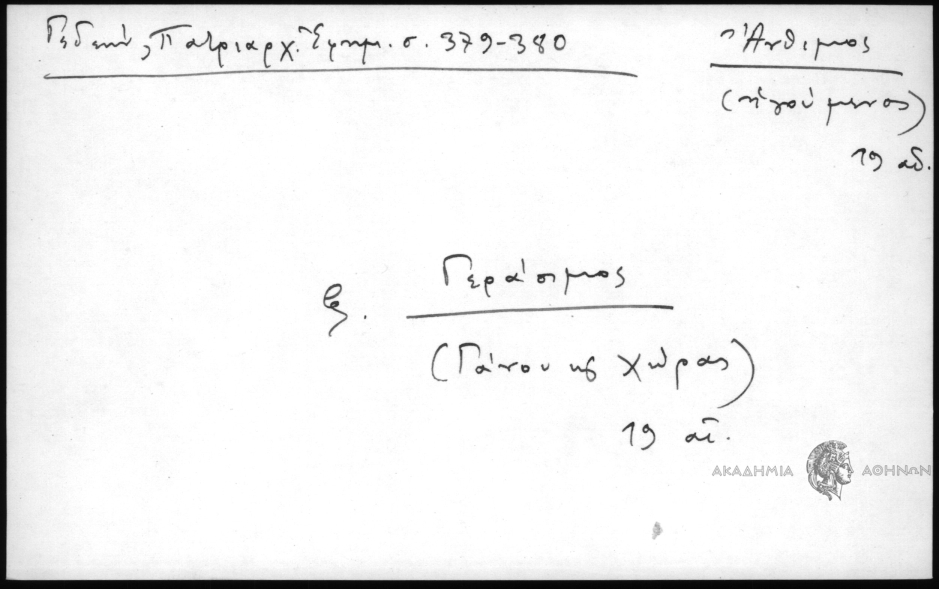 Γεδεών, Πατριαρχ. Ἐφημ. σ. 379-380
Ἄνθιμος
(ἡγούμενος)
19 αἰ.
Γεράσιμος
(Γάνου καὶ Χώρας)
19 αἰ.
ΑΚΑΔΗΜΙΑ ΑΘΗΝΩΝ